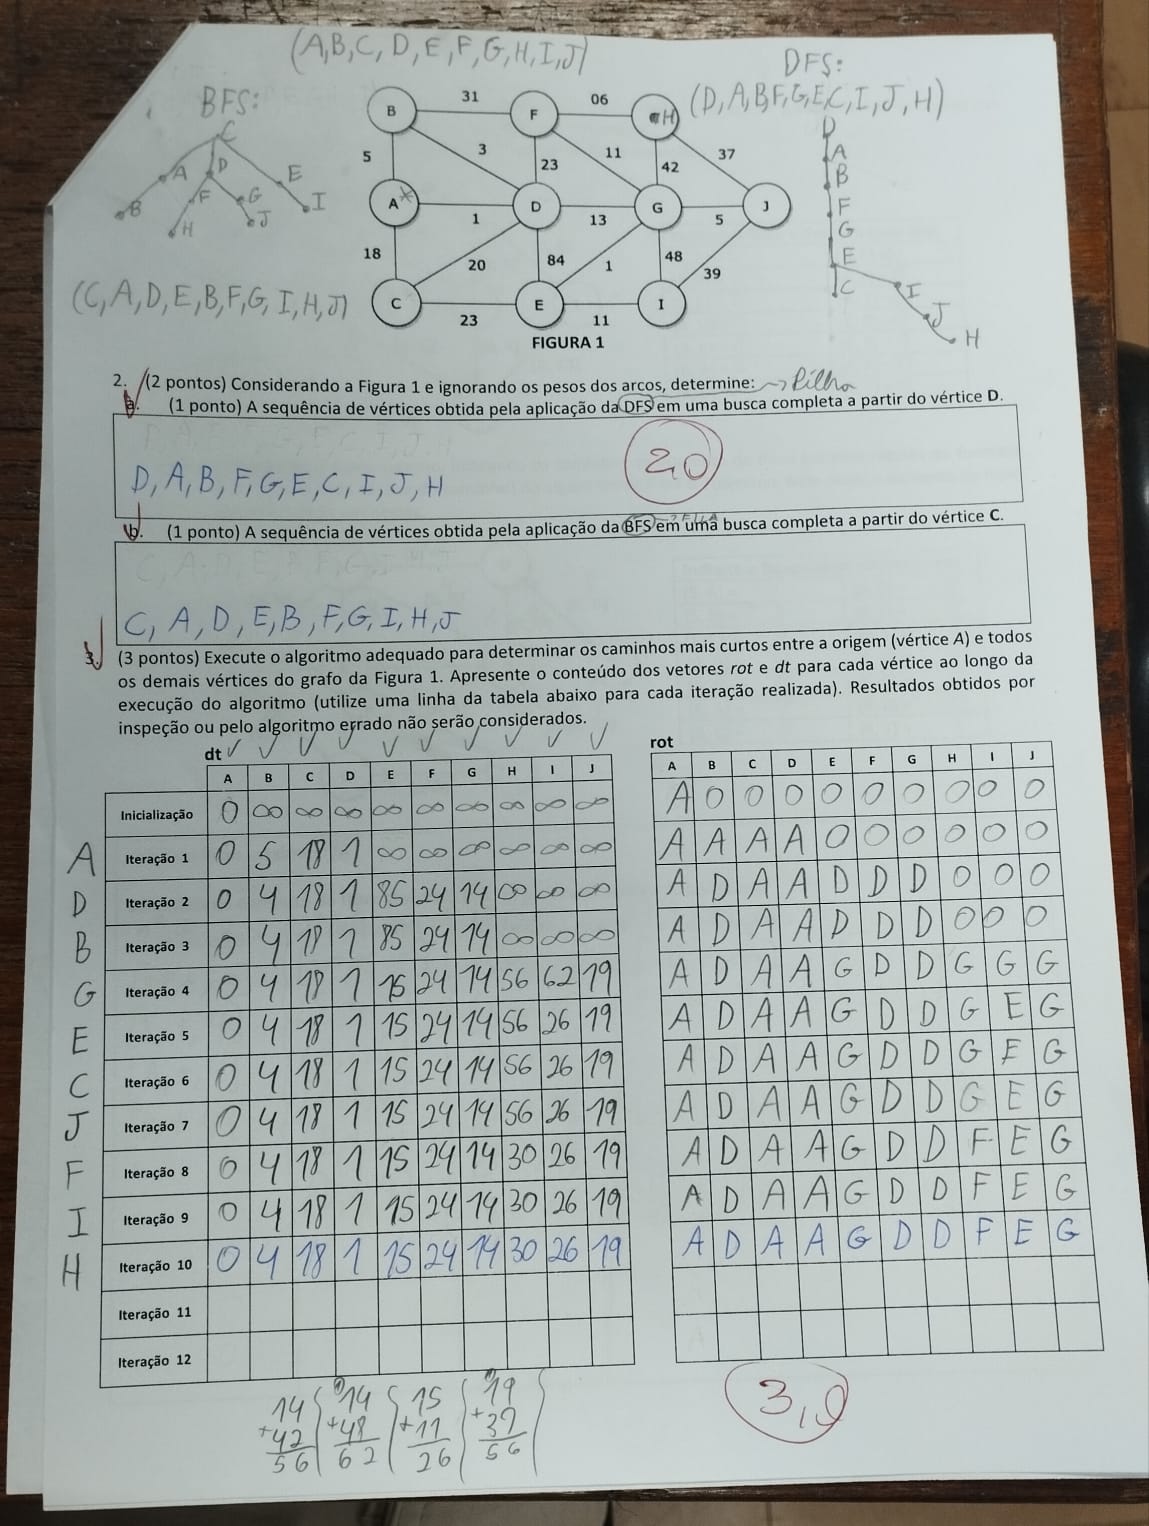 (A,B,C,D,E,F,G,H,I,J)
BFS:
C
A D E
B F G I
H J
(C,A,D,E,B,F,G,I,H,J)
DFS:
(D,A,B,F,G,E,C,I,J,H)
D
A
B
F
G
E
C I
J
H
B 31 F 06 H
5 3 23 11 42 37
A 1 D 13 G 5 J
18 20 84 1 48 39
C 23 E 11 I
FIGURA 1
2. (2 pontos) Considerando a Figura 1 e ignorando os pesos dos arcos, determine: → Pilha
a. (1 ponto) A sequência de vértices obtida pela aplicação da DFS em uma busca completa a partir do vértice D.
D, A, B, F, G, E, C, I, J, H
2,0
b. (1 ponto) A sequência de vértices obtida pela aplicação da BFS em uma busca completa a partir do vértice C.
C, A, D, E, B, F, G, I, H, J
3. (3 pontos) Execute o algoritmo adequado para determinar os caminhos mais curtos entre a origem (vértice A) e todos
os demais vértices do grafo da Figura 1. Apresente o conteúdo dos vetores rot e dt para cada vértice ao longo da
execução do algoritmo (utilize uma linha da tabela abaixo para cada iteração realizada). Resultados obtidos por
inspeção ou pelo algoritmo errado não serão considerados.
dt ✓ ✓ ✓ ✓ ✓ ✓ ✓ ✓ ✓ ✓
A B C D E F G H I J
Inicialização 0 ∞ ∞ ∞ ∞ ∞ ∞ ∞ ∞ ∞
A Iteração 1 0 5 18 1 ∞ ∞ ∞ ∞ ∞ ∞
D Iteração 2 0 4 18 1 85 24 14 ∞ ∞ ∞
B Iteração 3 0 4 18 1 85 24 14 ∞ ∞ ∞
G Iteração 4 0 4 18 1 15 24 14 56 62 19
E Iteração 5 0 4 18 1 15 24 14 56 26 19
C Iteração 6 0 4 18 1 15 24 14 56 26 19
J Iteração 7 0 4 18 1 15 24 14 56 26 19
F Iteração 8 0 4 18 1 15 24 14 30 26 19
I Iteração 9 0 4 18 1 15 24 14 30 26 19
H Iteração 10 0 4 18 1 15 24 14 30 26 19
Iteração 11
Iteração 12
rot
A B C D E F G H I J
A 0 0 0 0 0 0 0 0 0
A A A A 0 0 0 0 0 0
A D A A D D D 0 0 0
A D A A D D D 0 0 0
A D A A G D D G G G
A D A A G D D G E G
A D A A G D D G E G
A D A A G D D G E G
A D A A G D D F E G
A D A A G D D F E G
A D A A G D D F E G
14 14 15 19
+42 +48 +11 +37
56 62 26 56
3,0